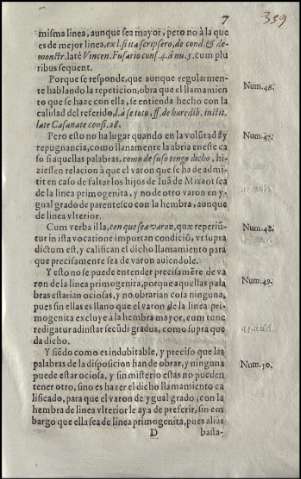 7
359
misma linea, aunque sea mayor, pero no à la que
es de mejor linea, ex l. si ita scripsero, de cond. & de-
monstr. latè Vincen. Fusario conf. 4. nu. 5. cum plu
ribus sequent.
Porque se responde, que aunque regularmen-
te hablando la repeticion, obra que el llamamien
to que se haze con ella, se entienda hecho con la
calidad del referido, l. à se toto, ff. de hæredib. instit.
late Casanate cons. 28.
Num. 46.
Pero esto no ha lugar quando en la volũtad ay
repugnancia, como llanamente la abria en este ca
so si aquellas palabras, como de suso tengo dicho, hi-
ziessen relacion à que el varon que se ha de admi-
tir en caso de faltar los hijos de Iuã de Miñot sea
de la linea primogenita, y no de otro varon en y-
gual grado de parentesco con la hembra, aunque
de linea vlterior.
Num. 47.
Cum verba illa, con que sea varon, quæ reperiũ-
tur in ista vocatione important conditiō, vt supra
dictum est, y califican el dicho llamamiento para
que precisamente sea de varon auiendole.
Num. 48.
Y esto no se puede entender precisamẽre de va
ron de la linea primogenita, porque aquestas pala
bras estarian ociosas, y no obrarian cosa ninguna,
pues sin ellas es llano que el varon de la linea pri-
mogenita excluye à la hembra mayor, cum tenè
redigatur ad instar secũdi gradus, como supra que
da dicho.
Num. 49.
Y siẽdo como es indubitable, y preciso que las
palabras de la disposicion han de obrar, y ninguna
puede estar ociosa, y sin misterio estas no pueden
tener otro, sino es hazer el dicho llamamiento ca
lificado, para que el varon de ygual grado, con la
hembra de linea vlterior le aya de preferir, sin em
bargo que ella sea de linea primogenita, pues aliàs
Num. 50.
D
basta-